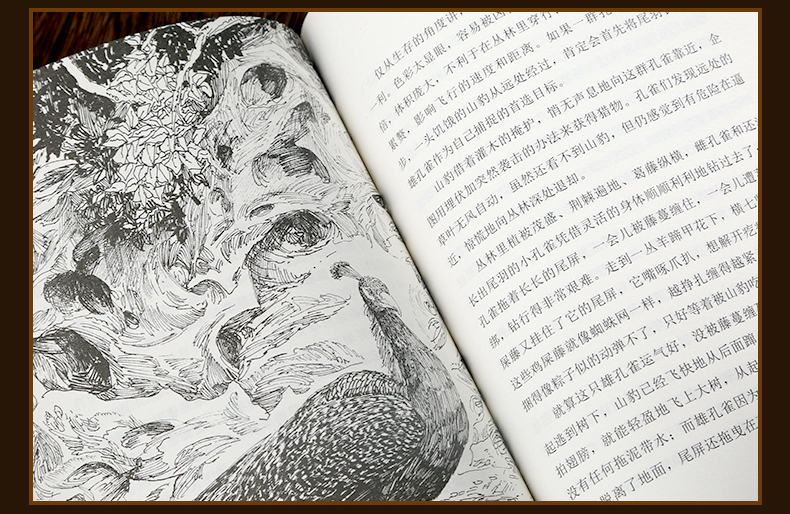 仅从生存的角度讲
一利。色彩太显眼，容易被凶
倍，体积庞大，不利于在丛林里穿行
累赘，影响飞行的速度和距离。如果一群孔
步，一头饥饿的山豹从远处经过，肯定会首先将尾羽
雄孔雀作为自己捕捉的首选目标。
山豹借着灌木的掩护，悄无声息地向这群孔雀靠近，企
图用埋伏加突然袭击的办法来获得猎物。孔雀们发现远处的
草叶无风自动，虽然还看不到山豹，但仍感觉到有危险在逼
近，惊慌地向丛林深处退却。
丛林里植被茂盛，荆棘遍地、葛藤纵横，雌孔雀和还没
长出尾羽的小孔雀凭借灵活的身体顺顺利利地钻过去了，
孔雀拖着长长的尾屏，一会儿被藤蔓缠住，一会儿遭
绑，钻行得非常艰难。走到一丛羊蹄甲花下，横七
屎藤又挂住了它的尾屏，它嘴啄爪扒，想解开疙
这些鸡屎藤就像蜘蛛网一样，越挣扎缠得越紧
捆得像粽子似的动弹不了，只好等着被山豹吃
就算这只雄孔雀运气好，没被藤蔓缠
起逃到树下，山豹已经飞快地从后面蹿
拍翅膀，就能轻盈地飞上大树，从起
没有任何拖泥带水；而雄孔雀因为
脱离了地面，尾屏还拖曳在